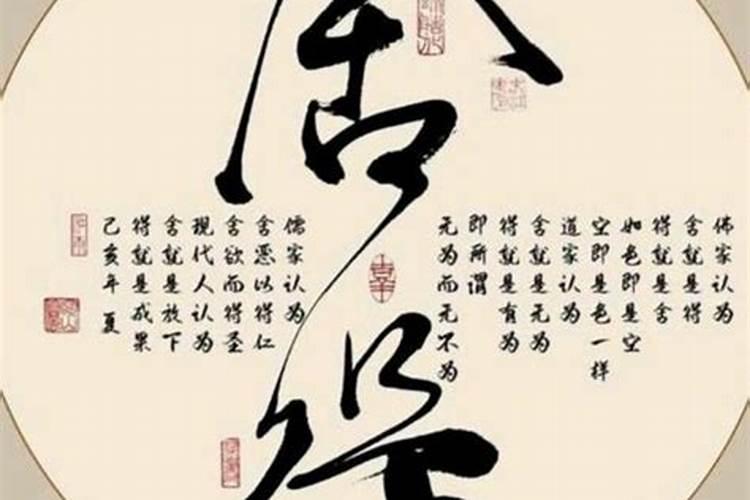 舍得
佛家认为
舍就是得
得就是舍
如色即是空
空即是色一样
道家认为
舍就是无为
得就是有为
即所谓
无为而无不为
儒家认为
舍恶以得仁
舍欲而得圣
现代人认为
舍就是放下
得就是成果
己亥年夏